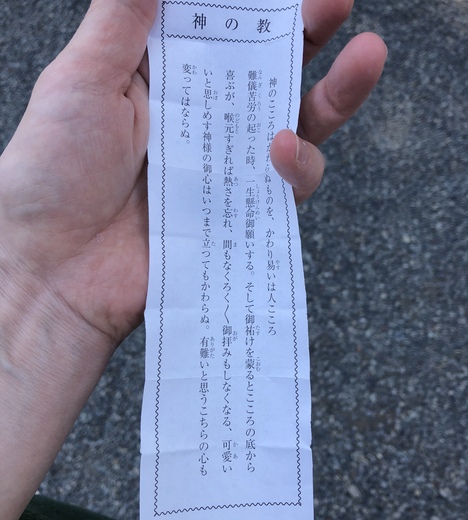 神の教
神のこころはか ぬものを、かわり易いは人こころ
難儀苦労の起った時、一生懸命御願いする。そして御祐けを蒙るとこころの底から
喜ぶが、喉元すぎれば熱さを忘れ、間もなくろく〱御拝みもしなくなる、可愛い
いと思しめす神様の御心はいつまで立つてもかわらぬ。有難いと思うこちらの心も
変ってはならぬ。